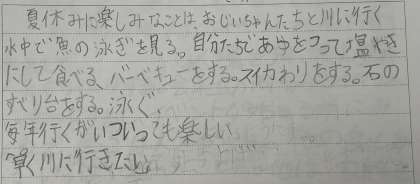 夏休みに楽しみなことは、おじいちゃんたちと川に行く
水中で魚の泳ぎを見る。自分たちであゆをつって塩やき
にして食べる、バーベキューをする。スイカわりをする。石の
すべり台をする。泳ぐ、
毎年行くがいついっても楽しい
早く川に行きたい。